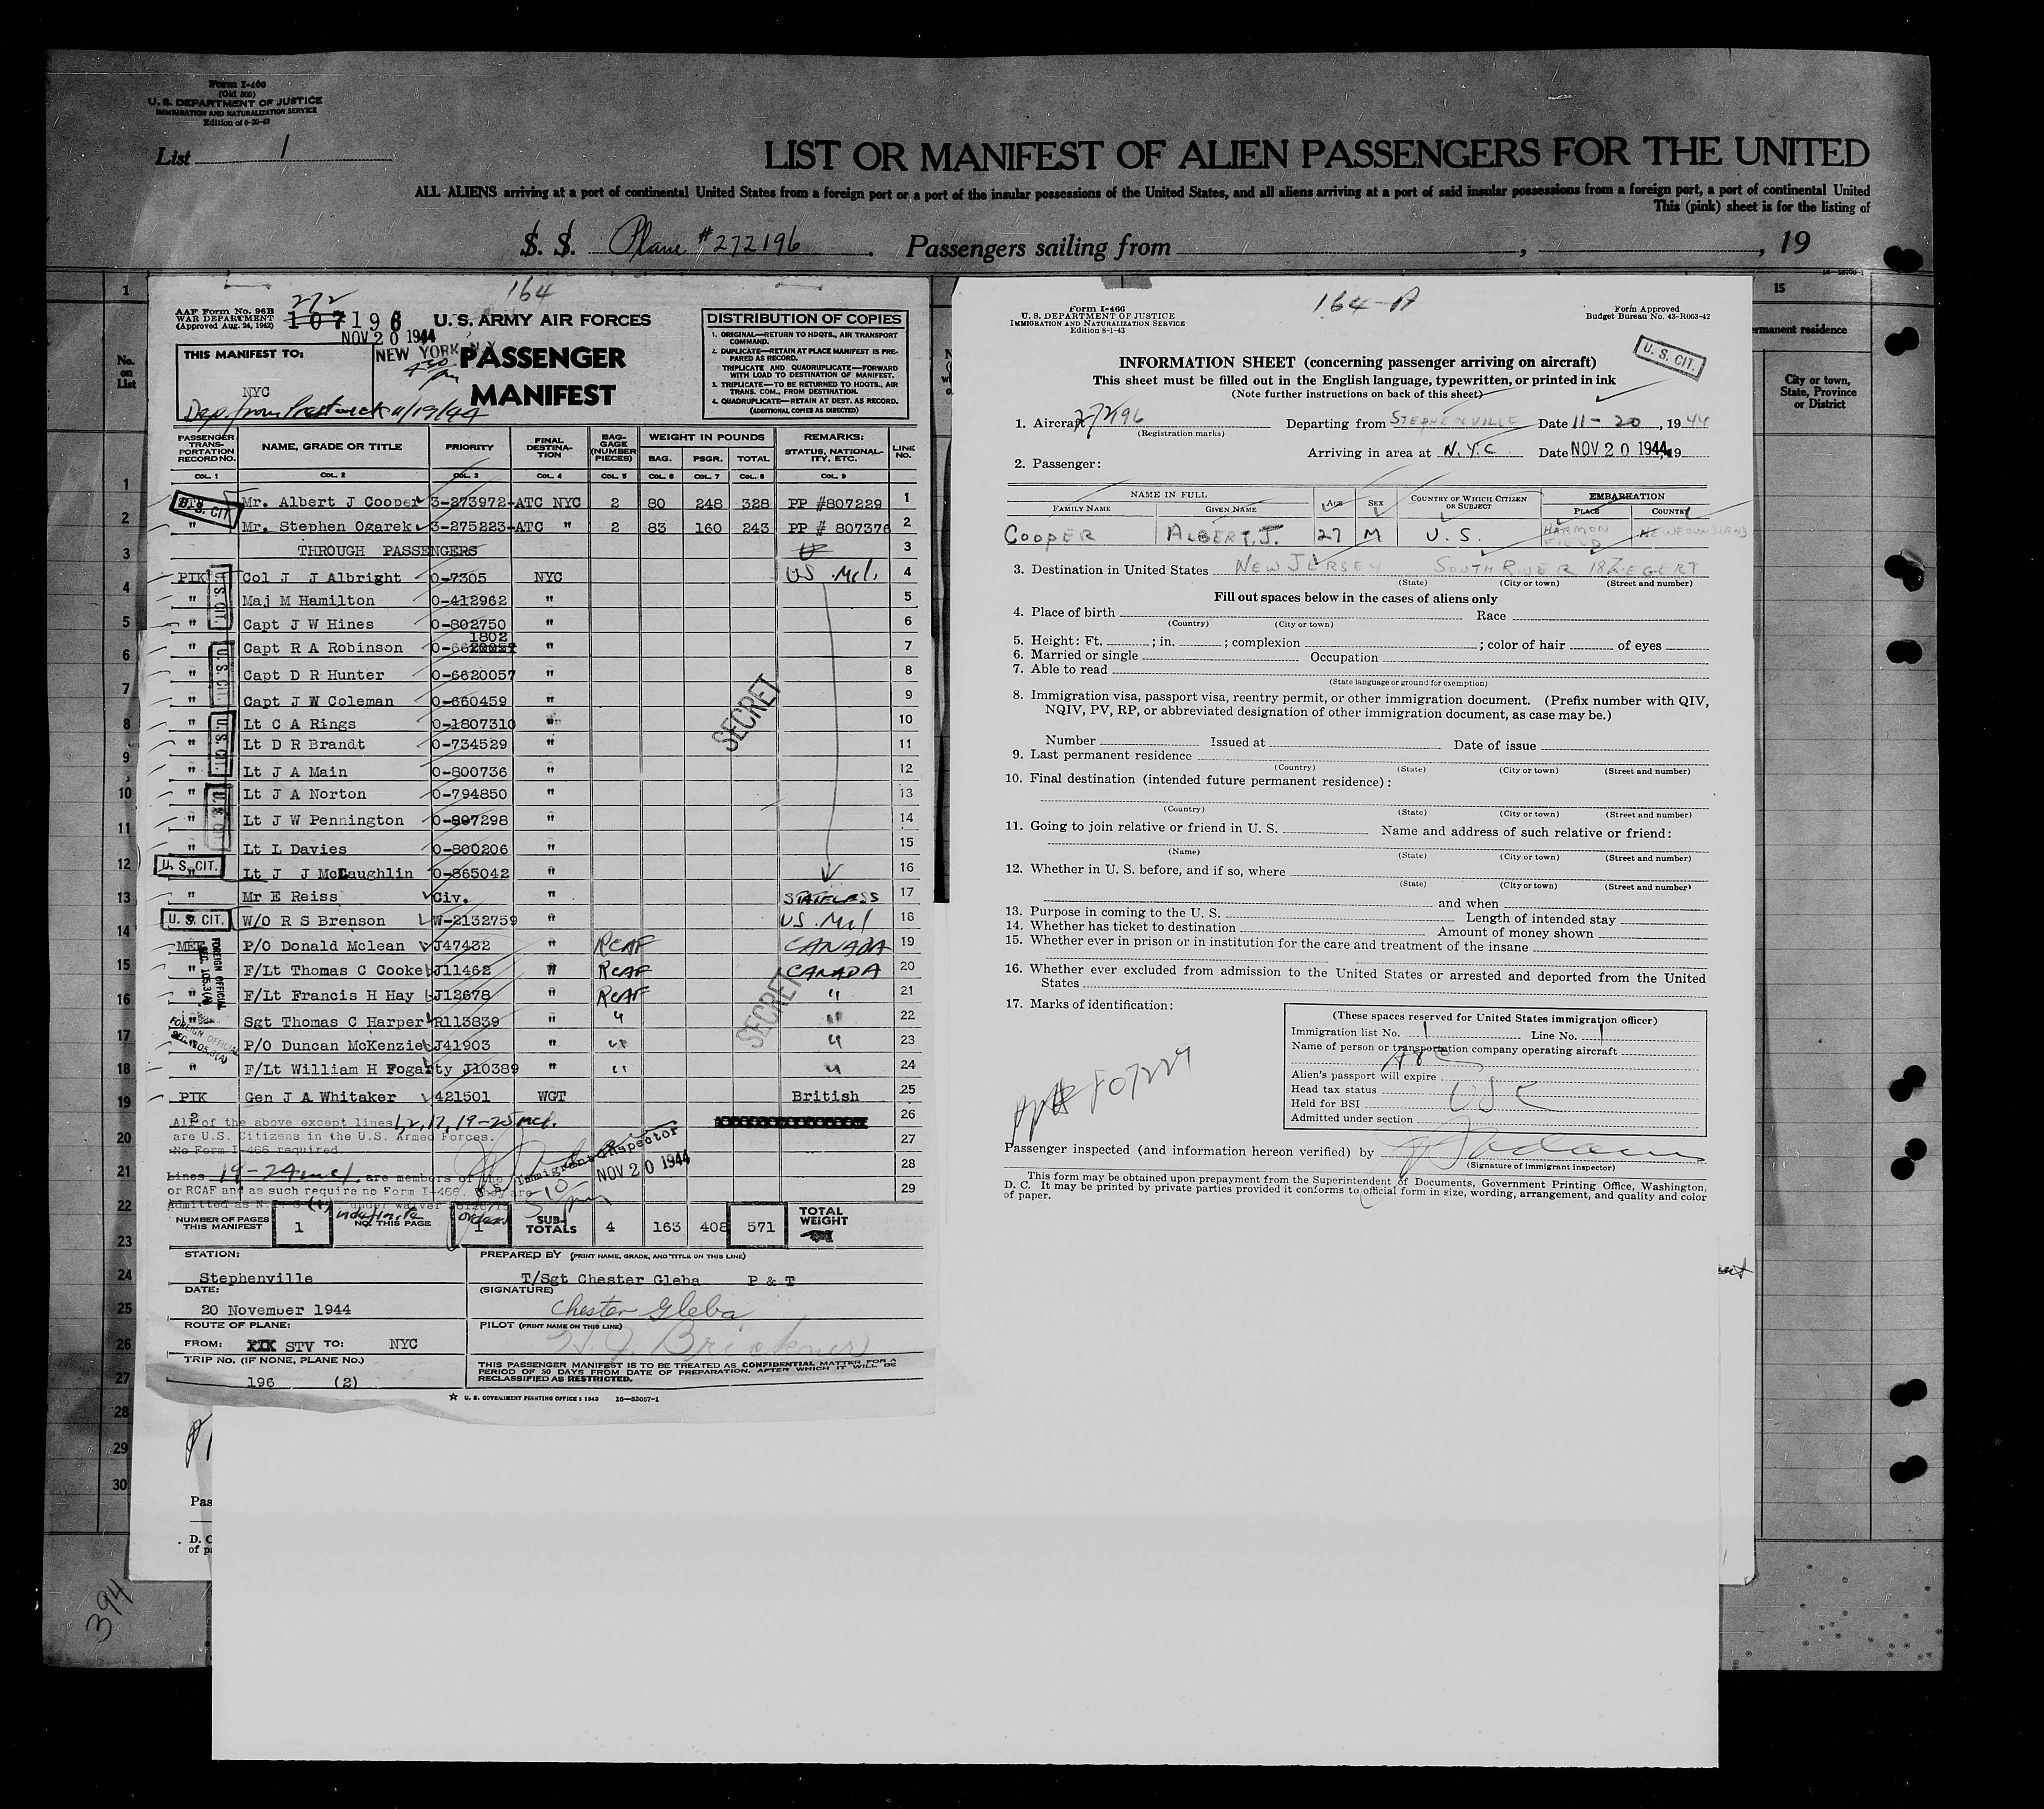 Form I-400
(Old 500)
U. S. DEPARTMENT OF JUSTICE
IMMIGRATION AND NATURALIZATION SERVICE
Edition of 6-20-42
List 1
LIST OR MANIFEST OF ALIEN PASSENGERS FOR THE UNITED
ALL ALIENS arriving at a port of continental United States from a foreign port or a port of the insular possessions of the United States, and all aliens arriving at a port of said insular possessions from a foreign port, a port of continental United
This (pink) sheet is for the listing of
S. S. Plane #272196. Passengers sailing from , , 19
No. on List
15
rmanent residence
City or town, State, Province or District
164
AAF Form No. 96B
WAR DEPARTMENT
(Approved Aug. 24, 1942)
272
107196
NOV 20 1944
NEW YORK, N.Y.
430 pm
U. S. ARMY AIR FORCES
PASSENGER
MANIFEST
THIS MANIFEST TO:
NYC
Dep. from Prestwick 11/19/44
DISTRIBUTION OF COPIES
1. ORIGINAL—RETURN TO HDQTS., AIR TRANSPORT COMMAND.
2. DUPLICATE—RETAIN AT PLACE MANIFEST IS PREPARED AS RECORD.
TRIPLICATE AND QUADRUPLICATE—FORWARD WITH LOAD TO DESTINATION OF MANIFEST.
3. TRIPLICATE—TO BE RETURNED TO HDQTS., AIR TRANS. COM., FROM DESTINATION.
4. QUADRUPLICATE—RETAIN AT DEST. AS RECORD.
(ADDITIONAL COPIES AS DIRECTED)
PASSENGER TRANSPORTATION RECORD NO. NAME, GRADE OR TITLE PRIORITY FINAL DESTINATION BAGGAGE (NUMBER PIECES) WEIGHT IN POUNDS BAG. PSGR. TOTAL REMARKS: STATUS, NATIONALITY, ETC. LINE NO.
COL. 1 COL. 2 COL. 3 COL. 4 COL. 5 COL. 6 COL. 7 COL. 8 COL. 9
U. S. CIT. Mr. Albert J Cooper 3-273972-ATC NYC 2 80 248 328 PP #807229 1
" Mr. Stephen Ogarek 3-275223-ATC " 2 83 160 243 PP # 807376 2
THROUGH PASSENGERS 3
PIK Col J J Albright 0-7305 NYC US Mil. 4
" Maj M Hamilton 0-412962 " 5
" Capt J W Hines 0-802750 " 6
1802
" Capt R A Robinson 0-6620057 " 7
" Capt D R Hunter 0-6620057 " 8
" Capt J W Coleman 0-660459 " 9
" Lt C A Rings 0-1807310 " 10
" Lt D R Brandt 0-734529 " 11
" Lt J A Main 0-800736 " 12
" Lt J A Norton 0-794850 " 13
" Lt J W Pennington 0-807298 " 14
" Lt L Davies 0-800206 " 15
U. S. CIT. Lt J J McLaughlin 0-865042 " 16
" Mr E Reiss Civ. " STATELESS 17
U. S. CIT. W/O R S Brenson W-2132759 " US Mil 18
MET P/O Donald Mclean J47432 " RCAF CANADA 19
" F/Lt Thomas C Cooke J11462 " RCAF CANADA 20
" F/Lt Francis H Hay J12678 " RCAF " 21
" Sgt Thomas C Harper R113839 " " " 22
" P/O Duncan McKenzie J41903 " " " 23
" F/Lt William H Fogarty J10389 " " " 24
PIK Gen J A Whitaker 421501 WGT British 25
FOREIGN OFFICIAL SEC. 105.3(A)
SECRET
SECRET
All of the above except lines 1, 2, 17, 19-25 incl. 26
are U.S. Citizens in the U.S. Armed Forces. 27
No Form I-466 required.
Lines 19-24 incl. are members of the 28
or RCAF and as such require no Form I-466. They are 29
U. S. Immigrant Inspector
NOV 20 1944
NUMBER OF PAGES THIS MANIFEST 1 NO. THIS PAGE 1 SUB-TOTALS 4 163 408 571 TOTAL WEIGHT
STATION:
Stephenville
PREPARED BY (PRINT NAME, GRADE, AND TITLE ON THIS LINE)
T/Sgt Chester Gleba P & T
DATE:
20 November 1944
(SIGNATURE)
Chester Gleba
ROUTE OF PLANE:
FROM: PIK STV TO: NYC
PILOT (PRINT NAME ON THIS LINE)
Brickner
TRIP NO. (IF NONE, PLANE NO.)
196 (2)
THIS PASSENGER MANIFEST IS TO BE TREATED AS CONFIDENTIAL MATTER FOR A PERIOD OF 30 DAYS FROM DATE OF PREPARATION, AFTER WHICH IT WILL BE RECLASSIFIED AS RESTRICTED.
☆ U. S. GOVERNMENT PRINTING OFFICE : 1943 16—33057-1
164-A
Form I-466
U. S. DEPARTMENT OF JUSTICE
IMMIGRATION AND NATURALIZATION SERVICE
Edition 8-1-43
Form Approved
Budget Bureau No. 43-R063-42
U. S. CIT.
INFORMATION SHEET (concerning passenger arriving on aircraft)
This sheet must be filled out in the English language, typewritten, or printed in ink
(Note further instructions on back of this sheet)
1. Aircraft 272196 Departing from STEPHENVILLE Date 11-20, 1944
(Registration marks)
Arriving in area at N.Y.C. Date NOV 20 1944, 19
2. Passenger:
NAME IN FULL AGE SEX COUNTRY OF WHICH CITIZEN OR SUBJECT EMBARKATION
FAMILY NAME GIVEN NAME PLACE COUNTRY
COOPER ALBERT. J. 27 M U. S. HARMON FIELD NEWFOUNDLAND
3. Destination in United States NEW JERSEY SOUTH RIVER
(State) (City or town) (Street and number)
Fill out spaces below in the cases of aliens only
4. Place of birth Race
(Country) (City or town)
5. Height: Ft. ; in. ; complexion ; color of hair of eyes
6. Married or single Occupation
7. Able to read
(State language or ground for exemption)
8. Immigration visa, passport visa, reentry permit, or other immigration document. (Prefix number with QIV, NQIV, PV, RP, or abbreviated designation of other immigration document, as case may be.)
Number Issued at Date of issue
9. Last permanent residence
(Country) (State) (City or town) (Street and number)
10. Final destination (intended future permanent residence):
(Country) (State) (City or town) (Street and number)
11. Going to join relative or friend in U. S. Name and address of such relative or friend:
(Name) (State) (City or town) (Street and number)
12. Whether in U. S. before, and if so, where
(State) (City or town) (Street and number)
and when
13. Purpose in coming to the U. S. Length of intended stay
14. Whether has ticket to destination Amount of money shown
15. Whether ever in prison or in institution for the care and treatment of the insane
16. Whether ever excluded from admission to the United States or arrested and deported from the United States
17. Marks of identification:
(These spaces reserved for United States immigration officer)
Immigration list No. 1 Line No. 1
Name of person or transportation company operating aircraft
ATC
Alien's passport will expire
Head tax status USC
Held for BSI
Admitted under section
PP# 807229
Passenger inspected (and information hereon verified) by
(Signature of immigrant inspector)
This form may be obtained upon prepayment from the Superintendent of Documents, Government Printing Office, Washington, D. C. It may be printed by private parties provided it conforms to official form in size, wording, arrangement, and quality and color of paper.
394